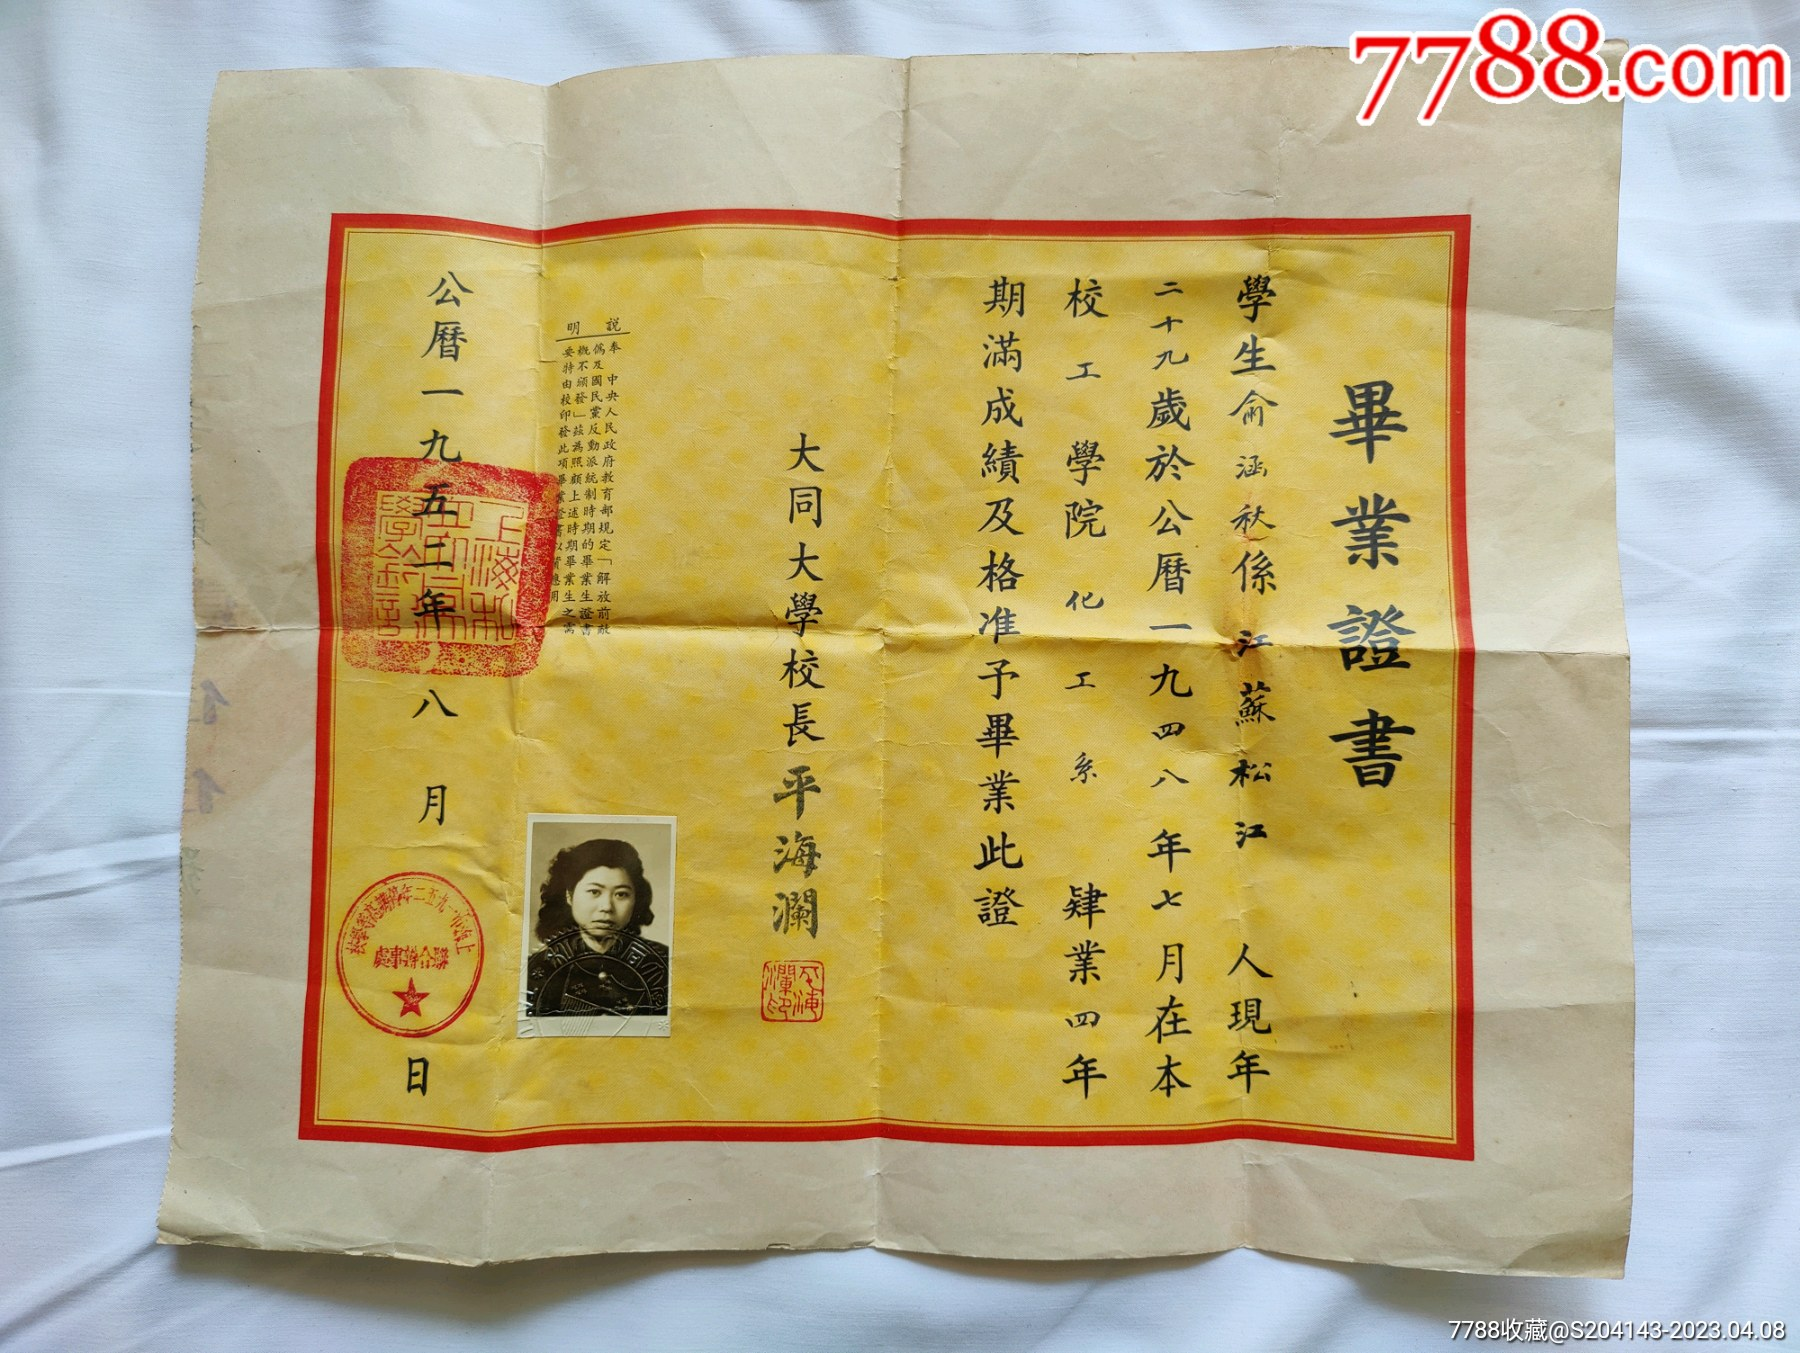 7788.com
畢業證書
學生俞涵秋係江蘇松江人現年
二十九歲於公曆一九四八年七月在本
校工學院化工系肄業四年
期滿成績及格准予畢業此證
大同大學校長平海瀾
說明
奉中央人民政府教育部規定「解放前敵
偽及國民黨反動派統制時期的畢業生證書
概不頒發」茲為照顧上述時期畢業生之需
要特由校印發此項畢業證書以資應用
公曆一九五二年八月日
聯合辦事處
7788收藏@S204143-2023.04.08